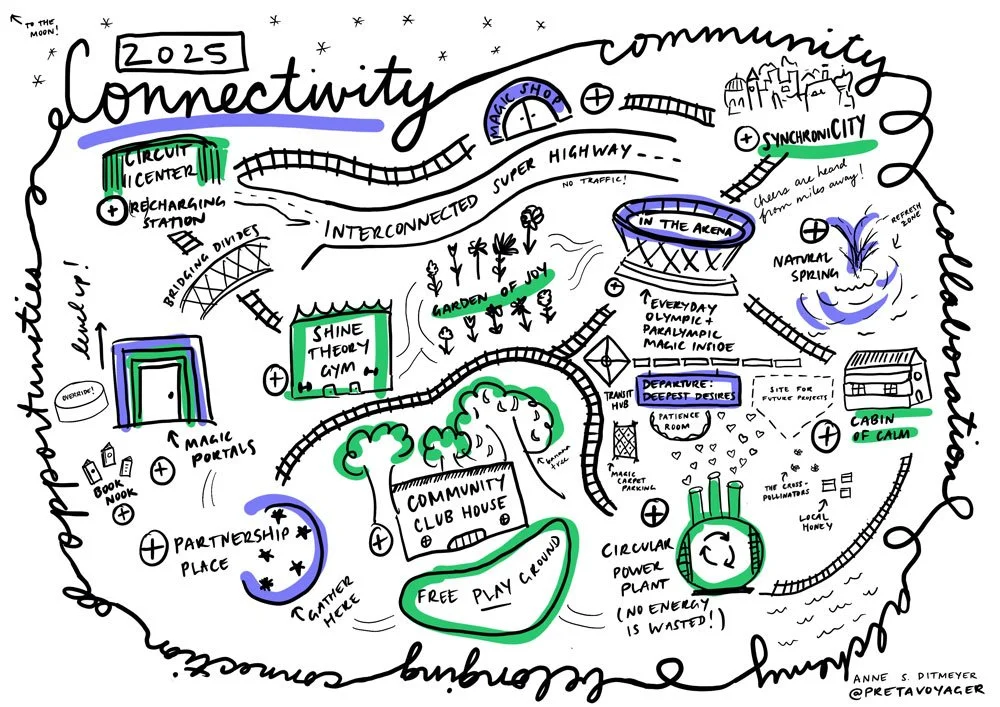 TO THE
MOON!
2025
Connectivity
community
collaborations
alchemy
belonging
connection
opportunities
MAGIC SHOP
SYNCHRONICITY
cheers are heard
from miles away!
CIRCUIT
CENTER
RECHARGING
STATION
INTERCONNECTED SUPER HIGHWAY
NO TRAFFIC!
BRIDGING DIVIDES
GARDEN OF JOY
IN THE ARENA
EVERYDAY
OLYMPIC +
PARALYMPIC
MAGIC INSIDE
REFRESH
ZONE
NATURAL
SPRING
level up!
OVERRIDE!
MAGIC
PORTALS
SHINE
THEORY
GYM
TRANSIT
HUB
DEPARTURE:
DEEPEST DESIRES
PATIENCE
ROOM
SITE FOR
FUTURE PROJECTS
CABIN
OF CALM
MAGIC
CARPET
PARKING
BOOK
NOOK
banana
tree
COMMUNITY
CLUB HOUSE
THE CROSS-
POLLINATORS
LOCAL
HONEY
PARTNERSHIP
PLACE
GATHER
HERE
FREE PLAY GROUND
CIRCULAR
POWER
PLANT
(NO ENERGY
IS WASTED!)
ANNE S. DITMEYER
@PRETAVOYAGER